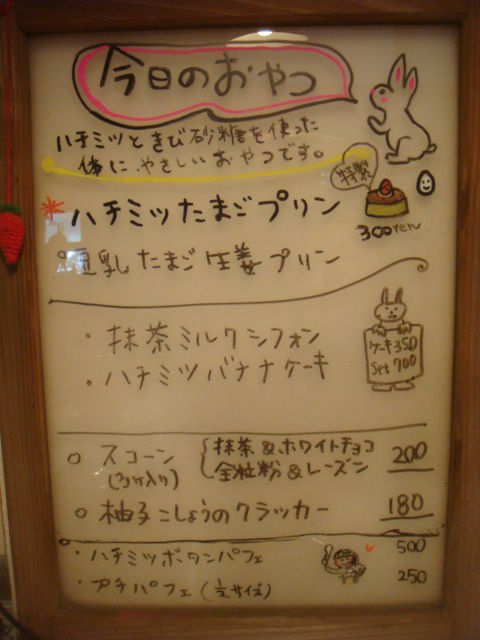 今日のおやつ
ハチミツときび砂糖を使った
体に やさしい おやつです。
特製
ハチミツたまごプリン
300yen
豆乳たまご生姜プリン
・抹茶ミルクシフォン
・ハチミツバナナケーキ
ケーキ350
Set 700
○ スコーン {抹茶&ホワイトチョコ 200
(3ケ入り) 全粒粉&レーズン
○ 柚子こしょうのクラッカー 180
・ハチミツボタンパフェ 500
・プチパフェ (½サイズ) 250